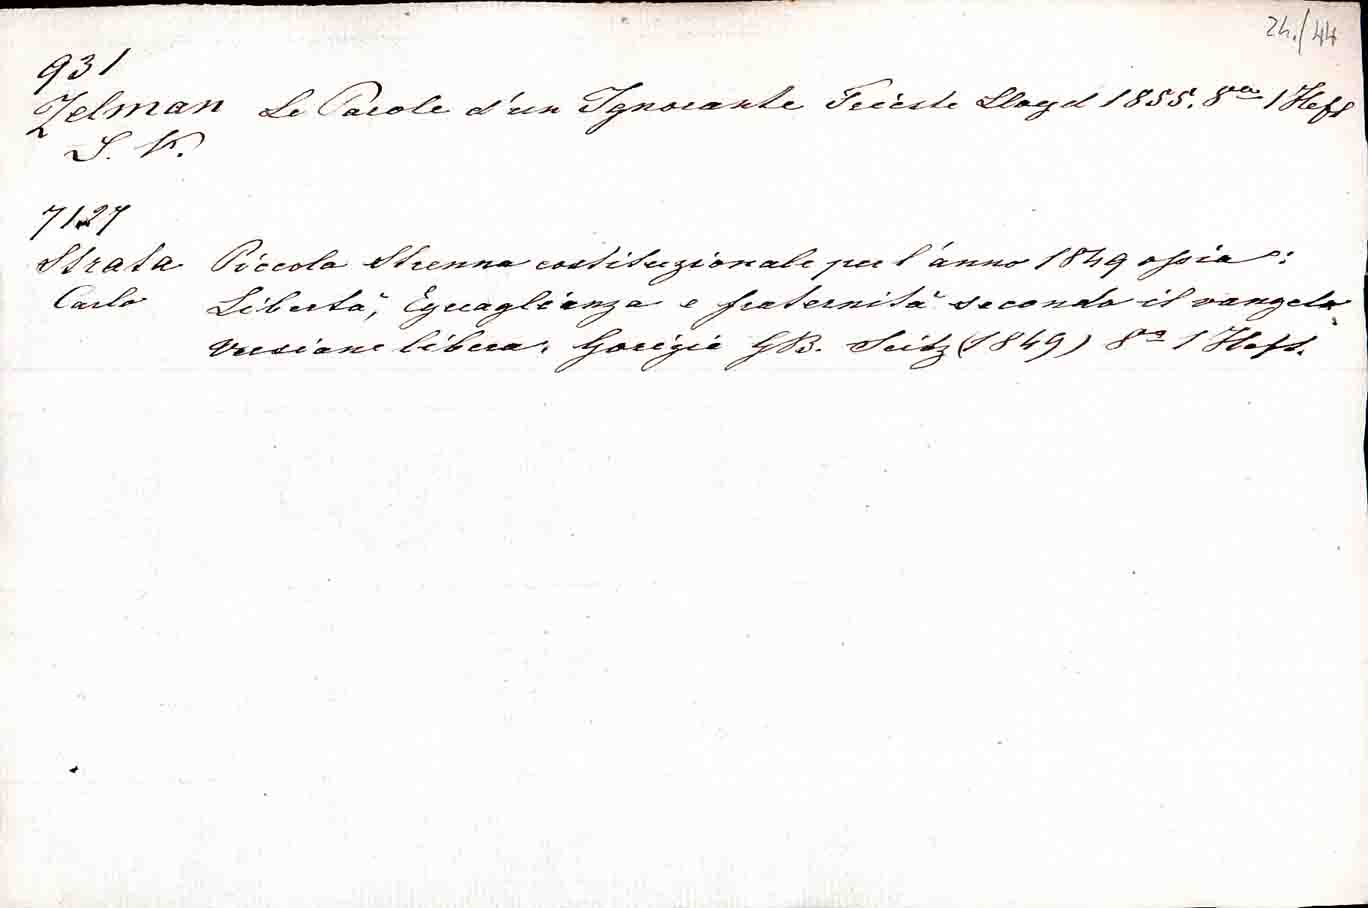 24./44
931
Zelman Le Parole d'un Ignorante Trieste Lloyd 1855. 8vo 1 Heft
S. V.
7127
Strata Piccola Strenna costituzionale per l'anno 1849 ossia:
Carlo Libertà, Eguaglianza e fraternità secondo il vangelo
versione libera. Gorizia GB. Seitz (1849) 8o 1 Heft.